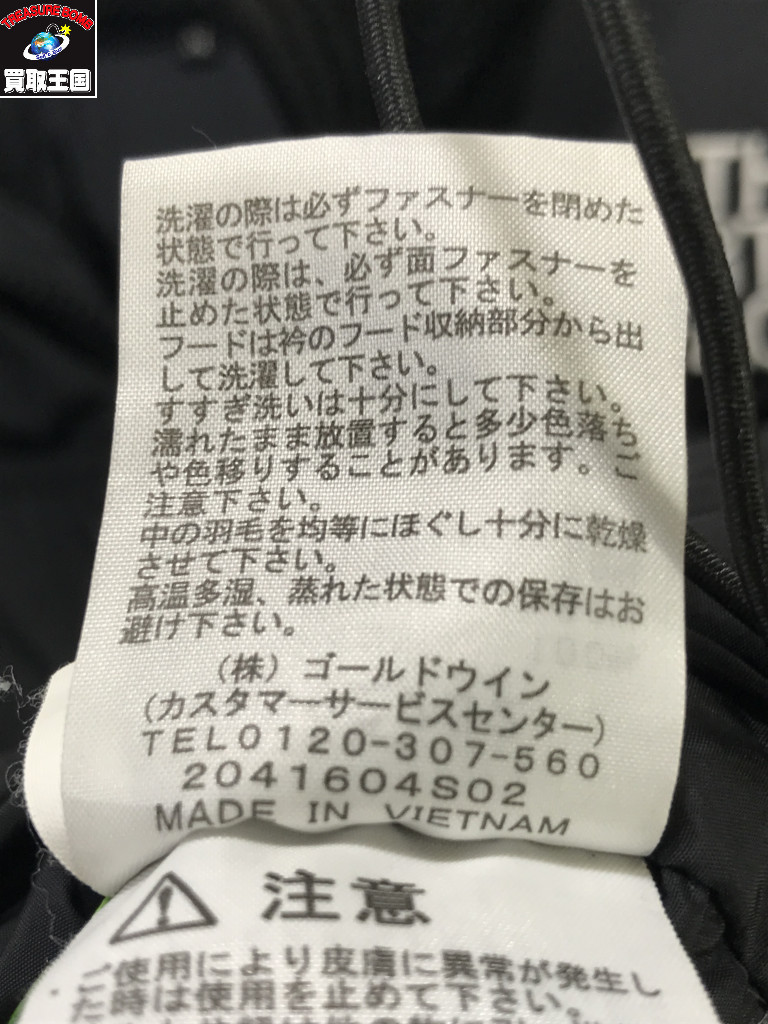 TREASURE BOMB
買取王国
洗濯の際は必ずファスナーを閉めた
状態で行って下さい。
洗濯の際は、必ず面ファスナーを
止めた状態で行って下さい。
フードは衿のフード収納部分から出
して洗濯して下さい。
すすぎ洗いは十分にして下さい。
濡れたまま放置すると多少色落ち
や色移りすることがあります。ご
注意下さい。
中の羽毛を均等にほぐし十分に乾燥
させて下さい。
高温多湿、蒸れた状態での保存はお
避け下さい。
(株) ゴールドウイン
(カスタマーサービスセンター)
TEL0120-307-560
2041604S02
MADE IN VIETNAM
注意
ご使用により皮膚に異常が発生し
た時は使用を止めて下さい。